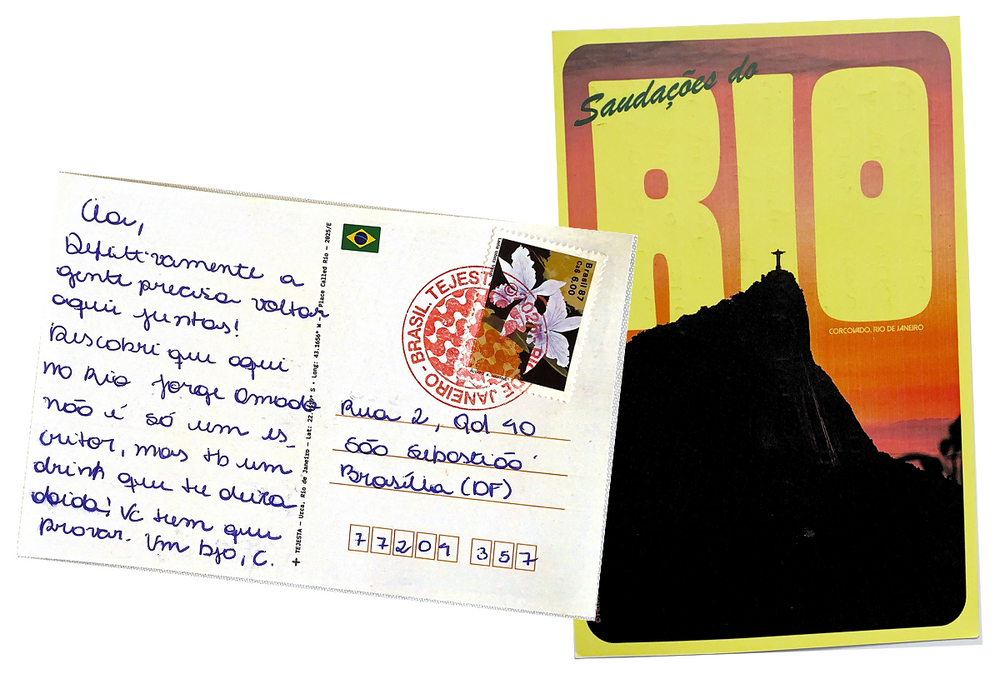 Definitivamente a
gente precisa voltar
aqui juntas!
Descobri que aqui
no Rio Jorge Amado
não é só um es-
critor, mas tb um
drink que te deixa
doida! Vc tem que
provar. Um bjo, C.
+ TEJESTA - Urca, Rio de Janeiro - Lat: 22. S · Long: 43.1656° W - A Place Called Rio - 2025/E
Brasil 87
Cz$ 6.00
BRASIL. TEJESTA
DE JANEIRO
Rua 2, Qd 40
São Sebastião
Brasília (DF)
77204 357
Saudações do
RIO
CORCOVADO, RIO DE JANEIRO